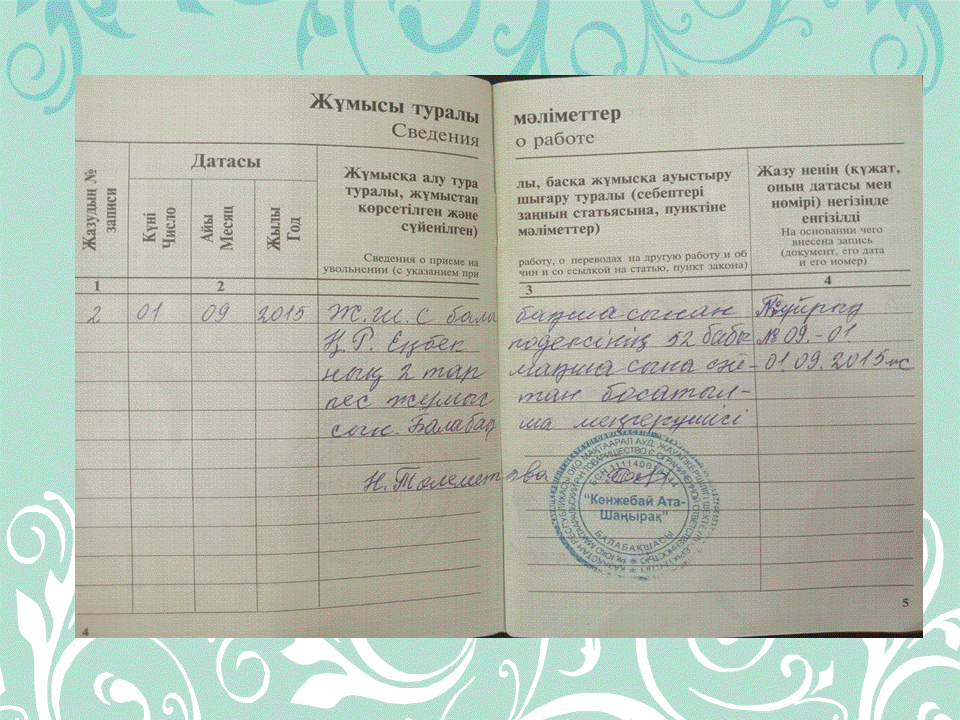 Жұмысы туралы мәліметтер
Сведения о работе
Жазудың №
записи
Датасы
Күні
Число
Айы
Месяц
Жылы
Год
Жұмысқа алу тура
туралы, жұмыстан
көрсетілген және
сүйенілген)
Сведения о приеме на
увольнении (с указанием при
лы, басқа жұмысқа ауыстыру
шығару туралы (себептері
заңның статьясына, пунктіне
мәліметтер)
работу, о переводах на другую работу и об
чин и со ссылкой на статью, пункт закона)
Жазу ненің (құжат,
оның датасы мен
нөмірі) негізінде
енгізілді
На основании чего
внесена запись
(документ, его дата
и его номер)
1 2 3 4
2 01 09 2015 Ж.Ш.С бала бақша сынан №бұйрық
Қ.Р. Еңбек кодексінің 52 бабы № 09.-01.
ның 2 тар мақша сына сәй- 01.09.2015-жс
кес жумыс тан босатыл-
сын. Балабақ ша меңгерушісі
Н.
"Көнжебай Ата-
Шаңырақ"
БАЛАБАҚШАСЫ
4
5